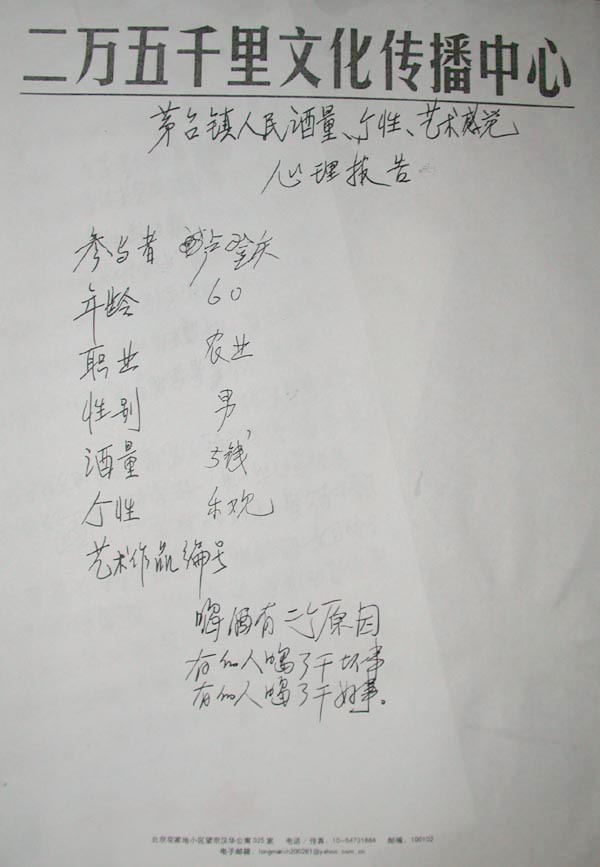 二万五千里文化传播中心
茅台镇人民酒量、个性、艺术感觉
心理报告
参与者 卢登
年龄 60
职业 农业
性别 男
酒量 5钱
个性 乐观
艺术作品编号
喝酒有二个原因
有的人喝了干坏事
有的人喝了干好事。
北京花家地小区望京汉华公寓 525 室 电话 / 传真: 10-64731884 邮编: 100102
电子邮箱: longmarch200261@yahoo.com.cn